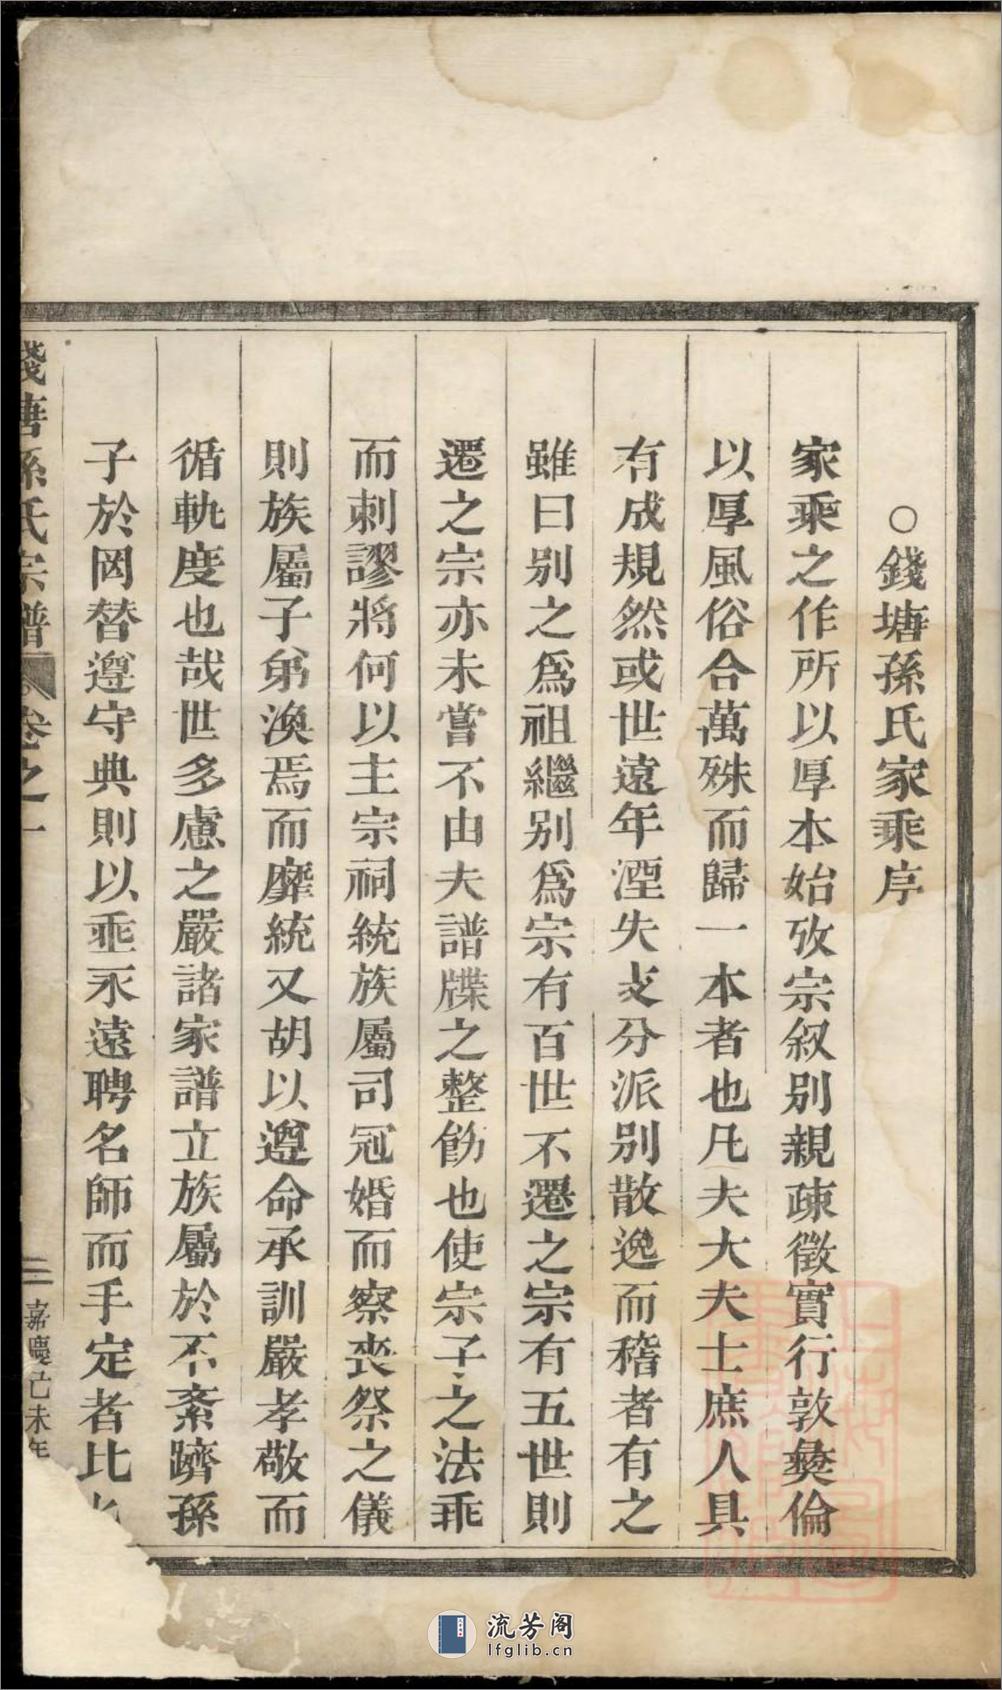 ○錢塘孫氏家乘序
家乘之作所以厚本始攷宗叙別親疎徵實行敦彝倫
以厚風俗合萬殊而歸一本者也凡夫大夫士庶人具
有成規然或世遠年湮失攴分派別散逸而稽者有之
雖曰別之爲祖繼別爲宗有百世不遷之宗有五世則
遷之宗亦未嘗不由夫譜牒之整飭也使宗子之法乖
而刺謬將何以主宗祠統族屬司冠婚而察喪祭之儀
則族屬子弟渙焉而靡統又胡以遵命承訓嚴孝敬而
循軌度也哉世多慮之嚴諸家譜立族屬於不紊躋孫
子於罔替遵守典則以垂永遠聘名師而手定者比
錢唐孫氏宗譜 卷之一 二 嘉慶己未年
流芳阁
lfglib.cn